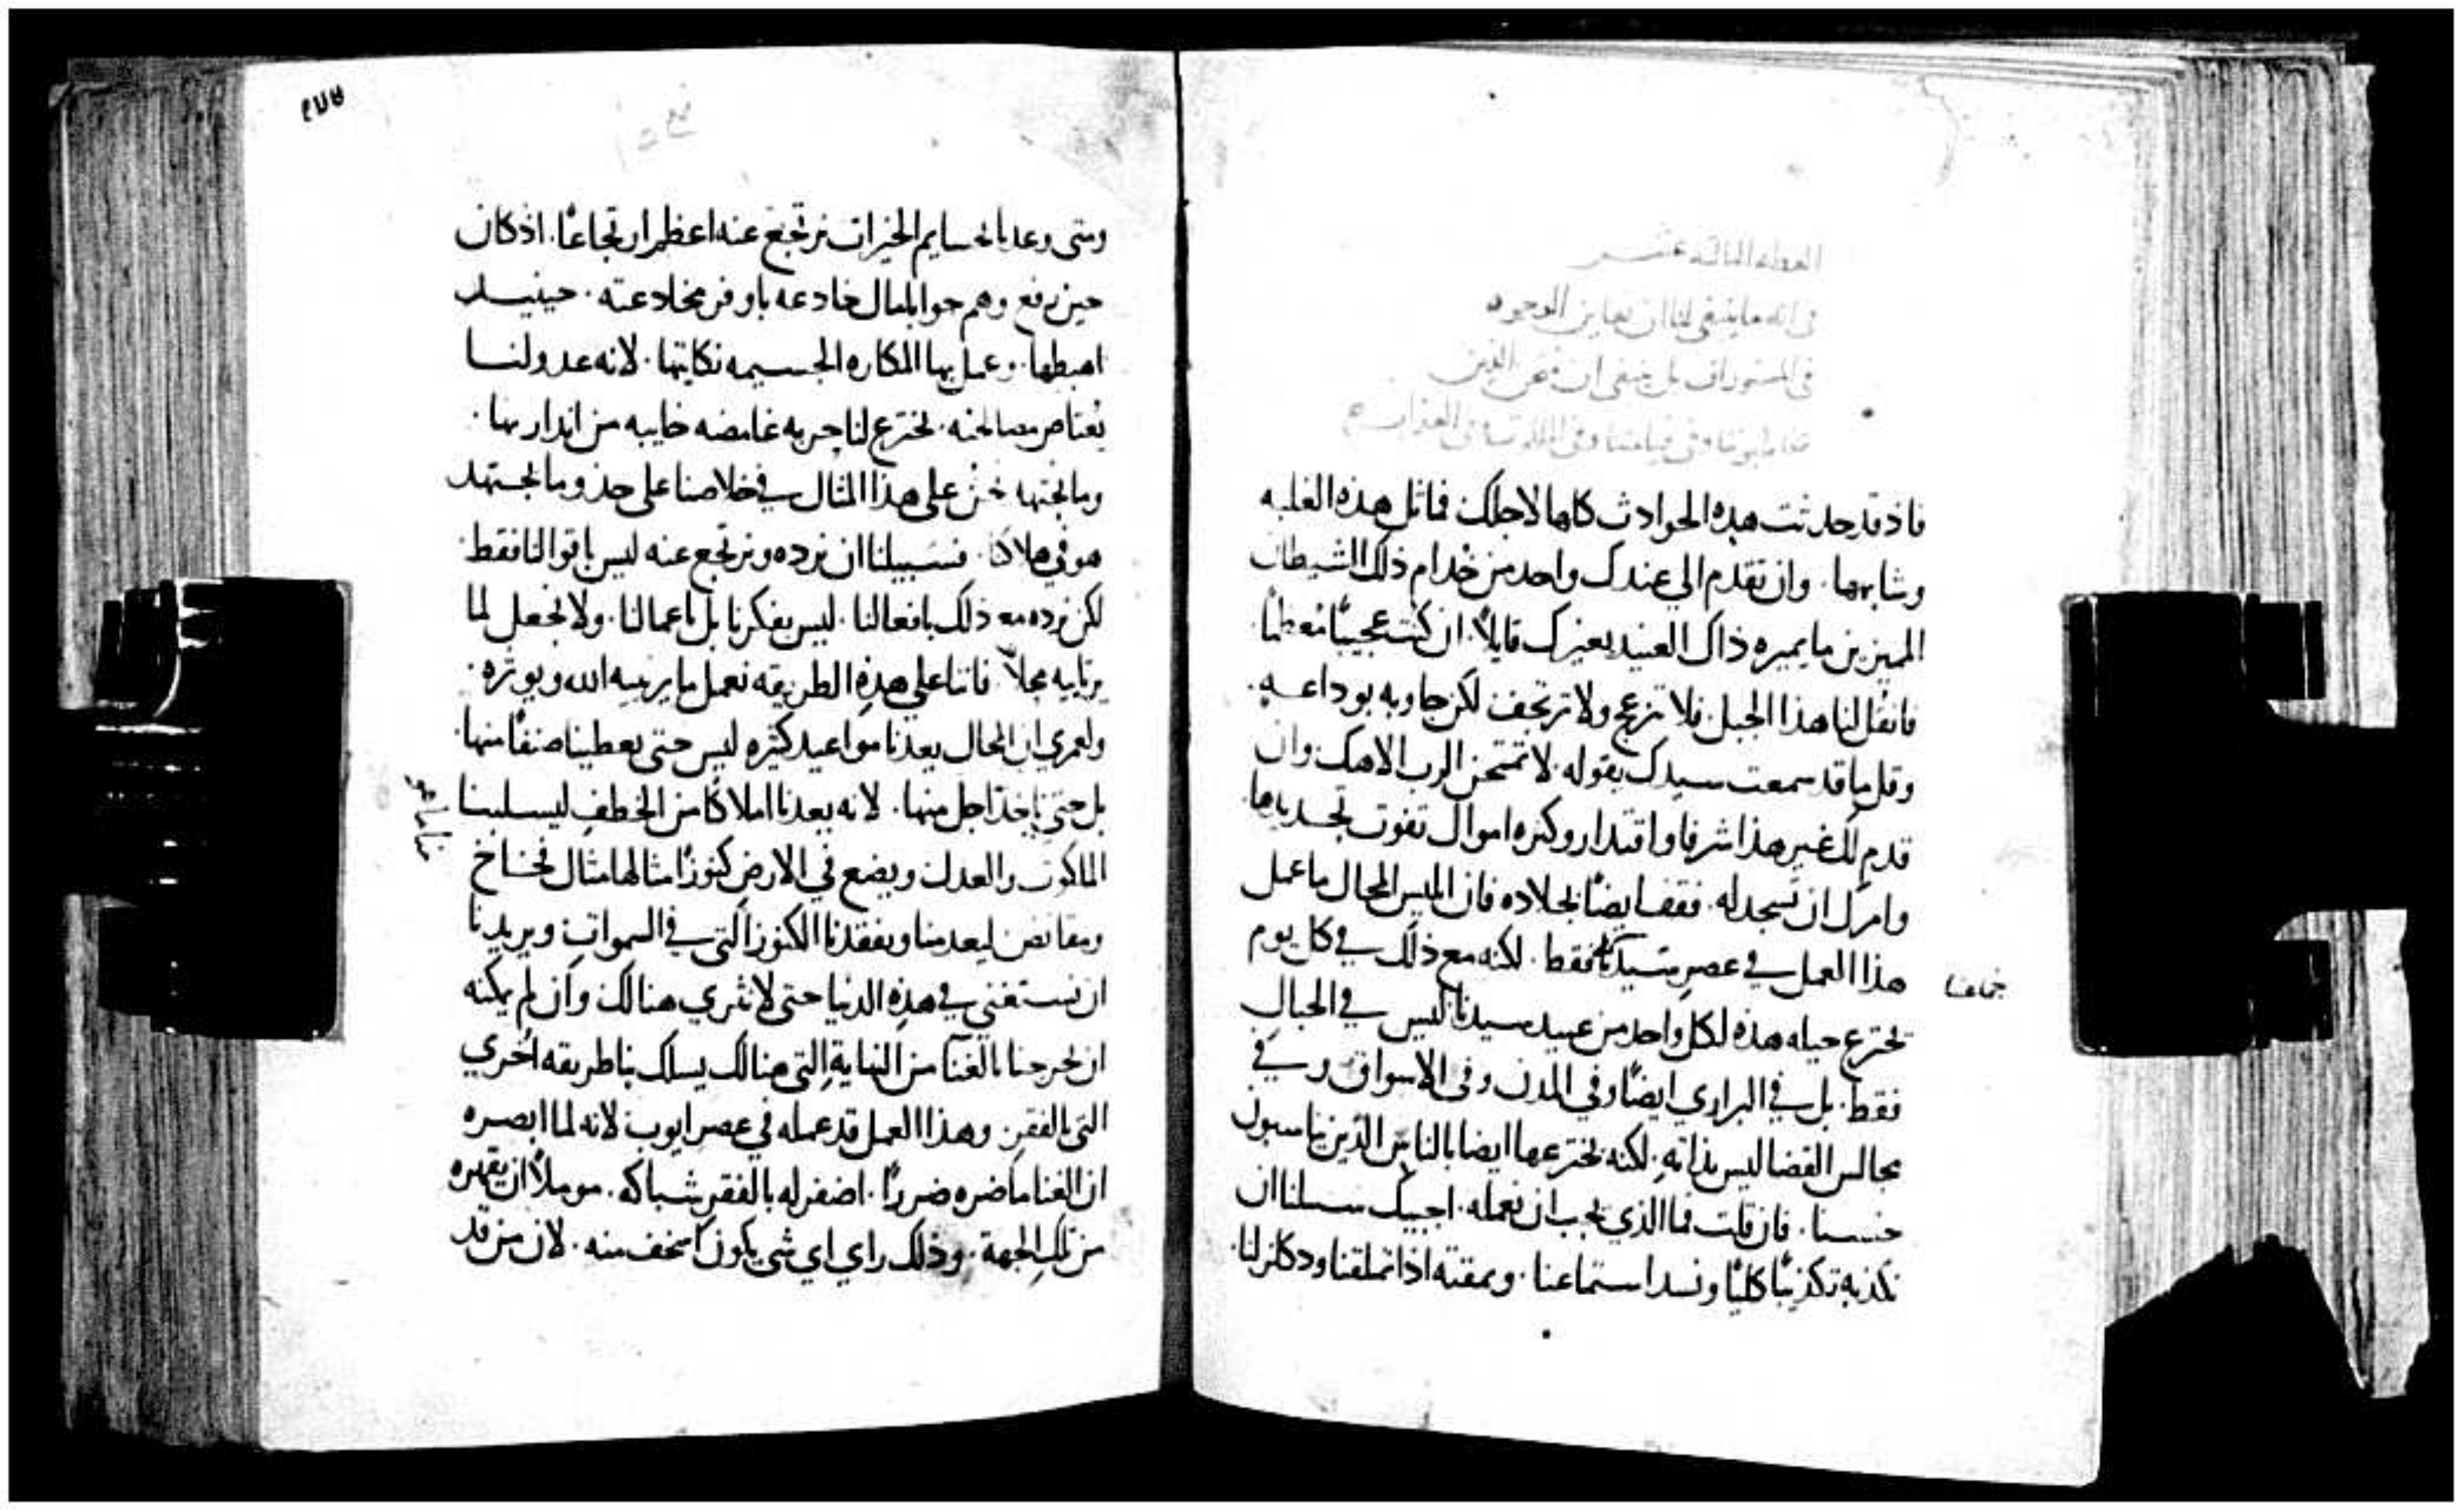 العظه الثالثه عشر
في انه ما ينبغي لنا ان نعاين الوجوه
في المستورات بل ينبغي ان
فاذ قد حدثت هذه الحوادث كلها لاجلك فماثل هذه الغلبه
وشابهها. وان تقدم الي عندك واحد من خدام ذلك الشيطان
المميزين ما يميزه ذاك العنيد يعيرك قايلاً. ان كنت عجيبًا معظمًا
فانقل لنا هذا الجبل. فلا تنزعج ولا ترتجف لكن جاوبه بوداعه.
وقل ما قد سمعت سيدك بقوله. لا تمتحن الرب الاهك وان
قدم لك غير هذا شرفا واقتدار وكثره اموال تفوت تحديدها.
وامرك ان تسجد له. فقف ايضًا بجلاده فان ابليس المحال ما عمل
هذا العمل في عصر سيدنا فقط. لكنه مع ذلك في كل يوم
يخترع حياه هذه لكل واحد من عبيد سيدنا ليس في الجبال
فقط. بل في البراري ايضًا وفي المدن وفي الاسواق وفي
مجالس القضا ليس بذاته. لكنه يخترعها ايضا بالناس الذين يناسبون
جنسنا. فان قلت فما الذي يجب ان نعمله. اجيبك سبيلنا ان
نكذبه تكذيبًا كليًا ونسد استماعنا. ونمقته اذا تملقنا
ومتى وعد بالجسايم الخيرات نرتجع عنه اعظم ارتجاعًا. اذ كان
حين رفع وهم حوا بالمال خادعه باوفر مخادعته. حينيد
اهبطها. وعمل بها المكاره الجسيمه نكايتها. لانه عدو لنا
يعتاص مصالحته. يخترع لنا حربه غامضه خايبه من
وما نجتهد نحن على هذا المثال في خلاصنا على حذو ما يجتهد
هو في هلاكنا. فسبيلنا ان نرده ونرتجع عنه ليس باقوالنا فقط
لكن نرده مع ذلك بافعالنا. ليس بفكرنا بل باعمالنا. ولا نجعل لما
يرتايه محلاً. فاننا على هذه الطريقه نعمل ما يرتيه الله ويوثره.
ولعمري ان المحال يعدنا مواعيد كثيره ليس حتى يعطينا صنفًا منها.
بل حتى ياخذ اجل منها. لانه يعدنا املاكًا من الخطف ليسلبنا
الملكوت والعدل ويضع في الارض كنوزًا امثالها مثال فخاخ
ومقانص ليعدمنا ويفقدنا الكنوز التي في السموات ويريدنا
ان نستغني في هذه الدنيا حتى لا نثري هنالك وان لم يمكنه
ان يخرجنا بالغنا من النهاية التي هنالك يسلك بنا طريقه اخري
التي بالفقر. وهذا العمل قد عمله في عصر ايوب لانه لما ابصره
ان الغنا ما ضره ضررًا. اضفر له بالفقر شباكه. موملاً ان يقهره
من تلك الجهة. وذلك راي اي شي يكون اسخف منه. لان من قد